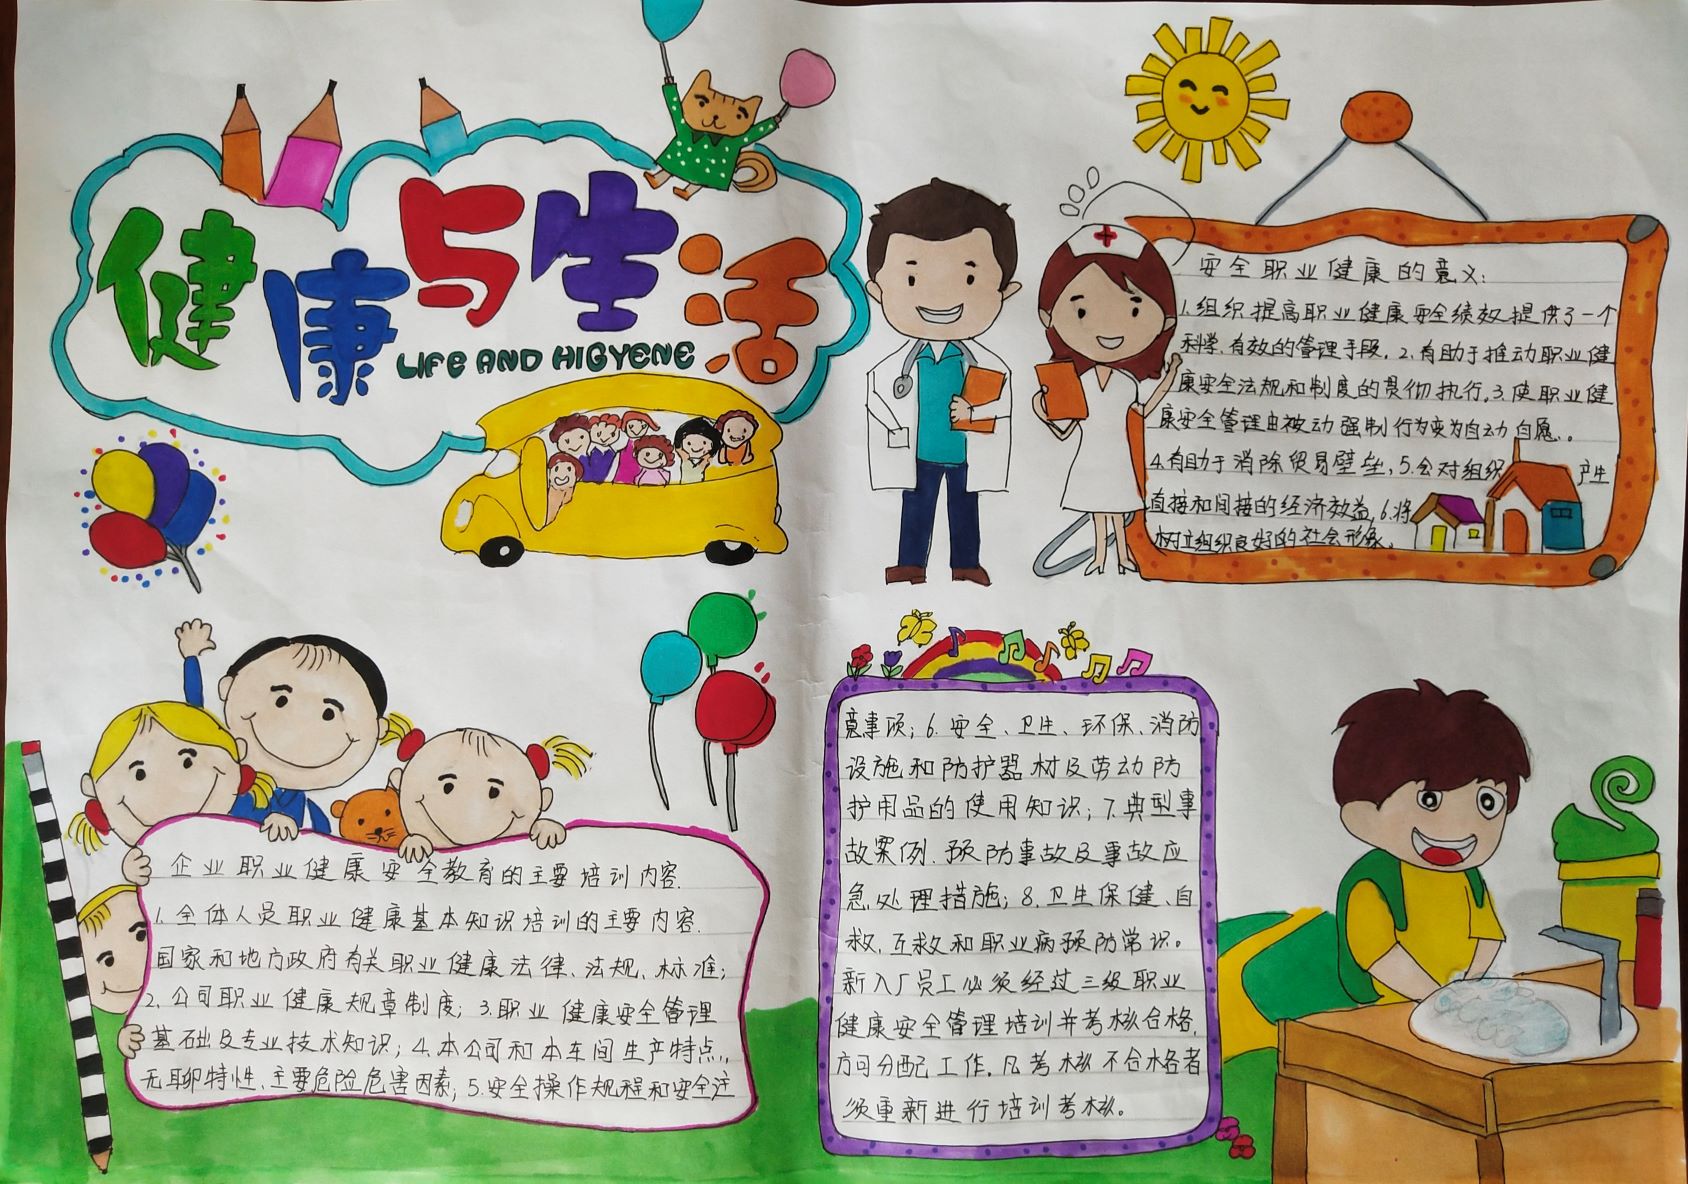 健康与生活
LIFE AND HIGYENE
安全职业健康的意义:
1.组织提高职业健康安全绩效提供了一个
科学、有效的管理手段。2.有助于推动职业健
康安全法规和制度的贯彻执行。3.使职业健
康安全管理由被动强制行为变为自动自愿。
4.有助于消除贸易壁垒,5.会对组织产生
直接和间接的经济效益,6.将
树立组织良好的社会形象。
企业职业健康安全教育的主要培训内容.
1.全体人员职业健康基本知识培训的主要内容.
国家和地方政府有关职业健康法律、法规、标准;
2.公司职业健康规章制度;3.职业健康安全管理
基础及专业技术知识;4.本公司和本车间生产特点,
无聊特性、主要危险危害因素;5.安全操作规程和安全注
意事项;6.安全、卫生、环保、消防
设施和防护器材及劳动防
护用品的使用知识;7.典型事
故案例、预防事故及事故应
急处理措施;8.卫生保健、自
救、互救和职业病预防常识。
新入厂员工必须经过三级职业
健康安全管理培训并考核合格,
方可分配工作。凡考核不合格者
须重新进行培训考核。